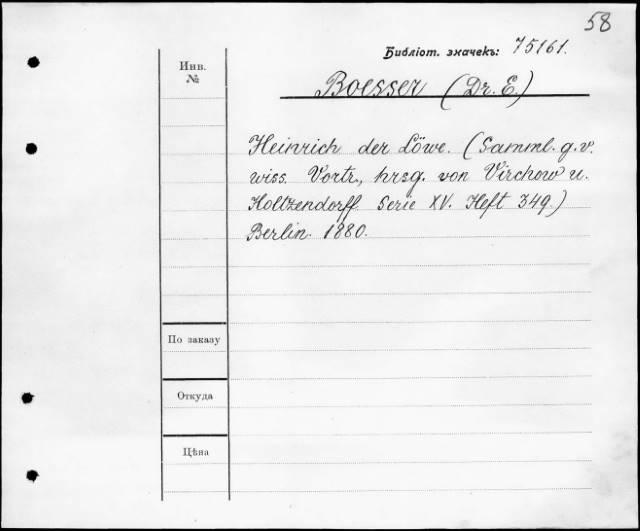 58
Библіот. значекъ: 75161.
Инв.
№
Boesser (Dr. E.)
Heinrich der Löwe. (Samml. g. v.
wiss. Vortr., hrsg. von Virchow u.
Holtzendorff. Serie XV. Heft 349.)
Berlin. 1880.
По заказу
Откуда
Цѣна